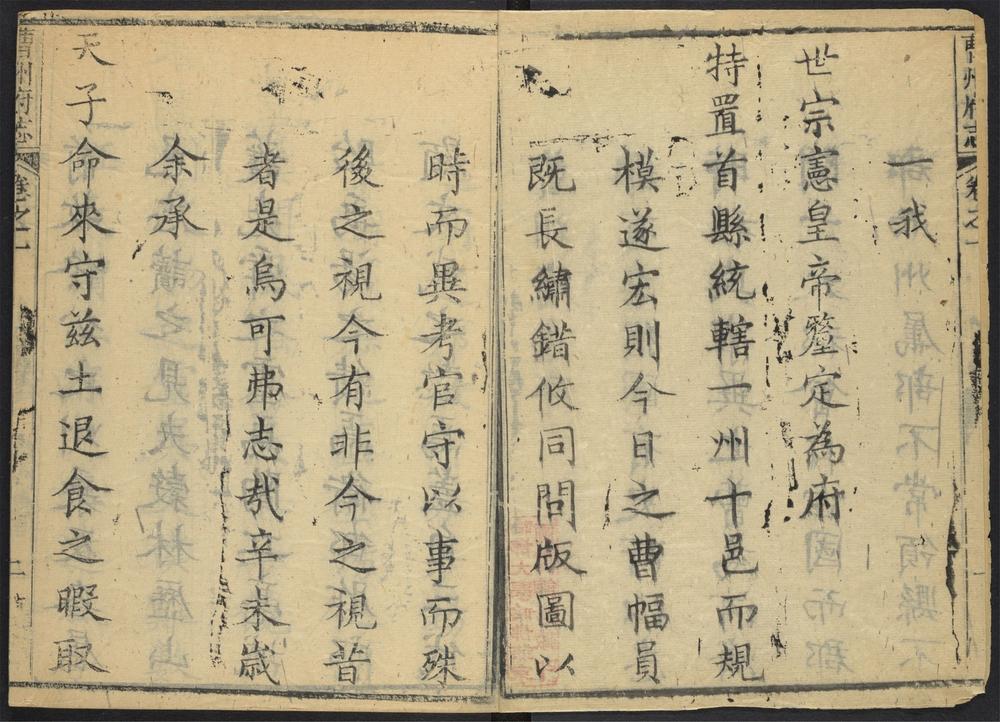 曹州府志
卷之一
一我
世宗憲皇帝釐定為府
特置首縣統轄一州十邑而規
模遂宏則今日之曹幅員
既長繡錯攸同問版圖以
時而異考官守以事而殊
後之視今有非今之視昔
者是烏可弗志哉辛未歲
余承
天子命來守茲土退食之暇取
曹州府志
卷之一